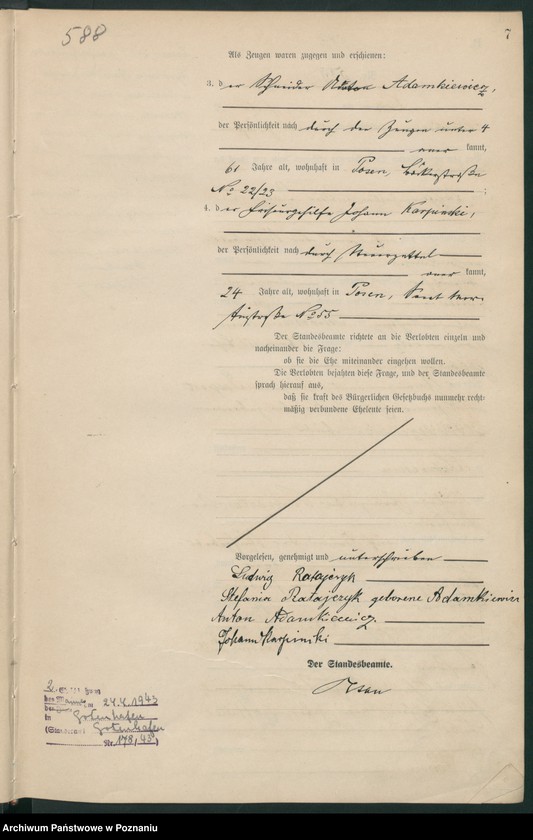 588
7
Als Zeugen waren zugegen und erschienen:
3. der Schneider Anton Adamkiewicz,
der Persönlichkeit nach durch den Zeugen unter 4
aner kannt,
61 Jahre alt, wohnhaft in Posen,
No 22/23 ;
4. der Friseurgehilfe Johann Karpinski,
der Persönlichkeit nach durch Steuerzettel
aner kannt,
24 Jahre alt, wohnhaft in Posen, Sankt Mar-
tinstraße No 55
Der Standesbeamte richtete an die Verlobten einzeln und
nacheinander die Frage:
ob sie die Ehe miteinander eingehen wollen.
Die Verlobten bejahten diese Frage, und der Standesbeamte
sprach hierauf aus,
daß sie kraft des Bürgerlichen Gesetzbuchs nunmehr recht-
mäßig verbundene Eheleute seien.
Vorgelesen, genehmigt und unterschrieben
Ludwig Ratajczyk
Stefania Ratajczyk geborene Adamkiewicz
Anton Adamkiewicz.
Johann Karpinski
Der Standesbeamte.
2.
des Mannes am 24.4.1943
in Gotenhafen
Gotenhafen
Nr. 178/43)
Archiwum Państwowe w Poznaniu